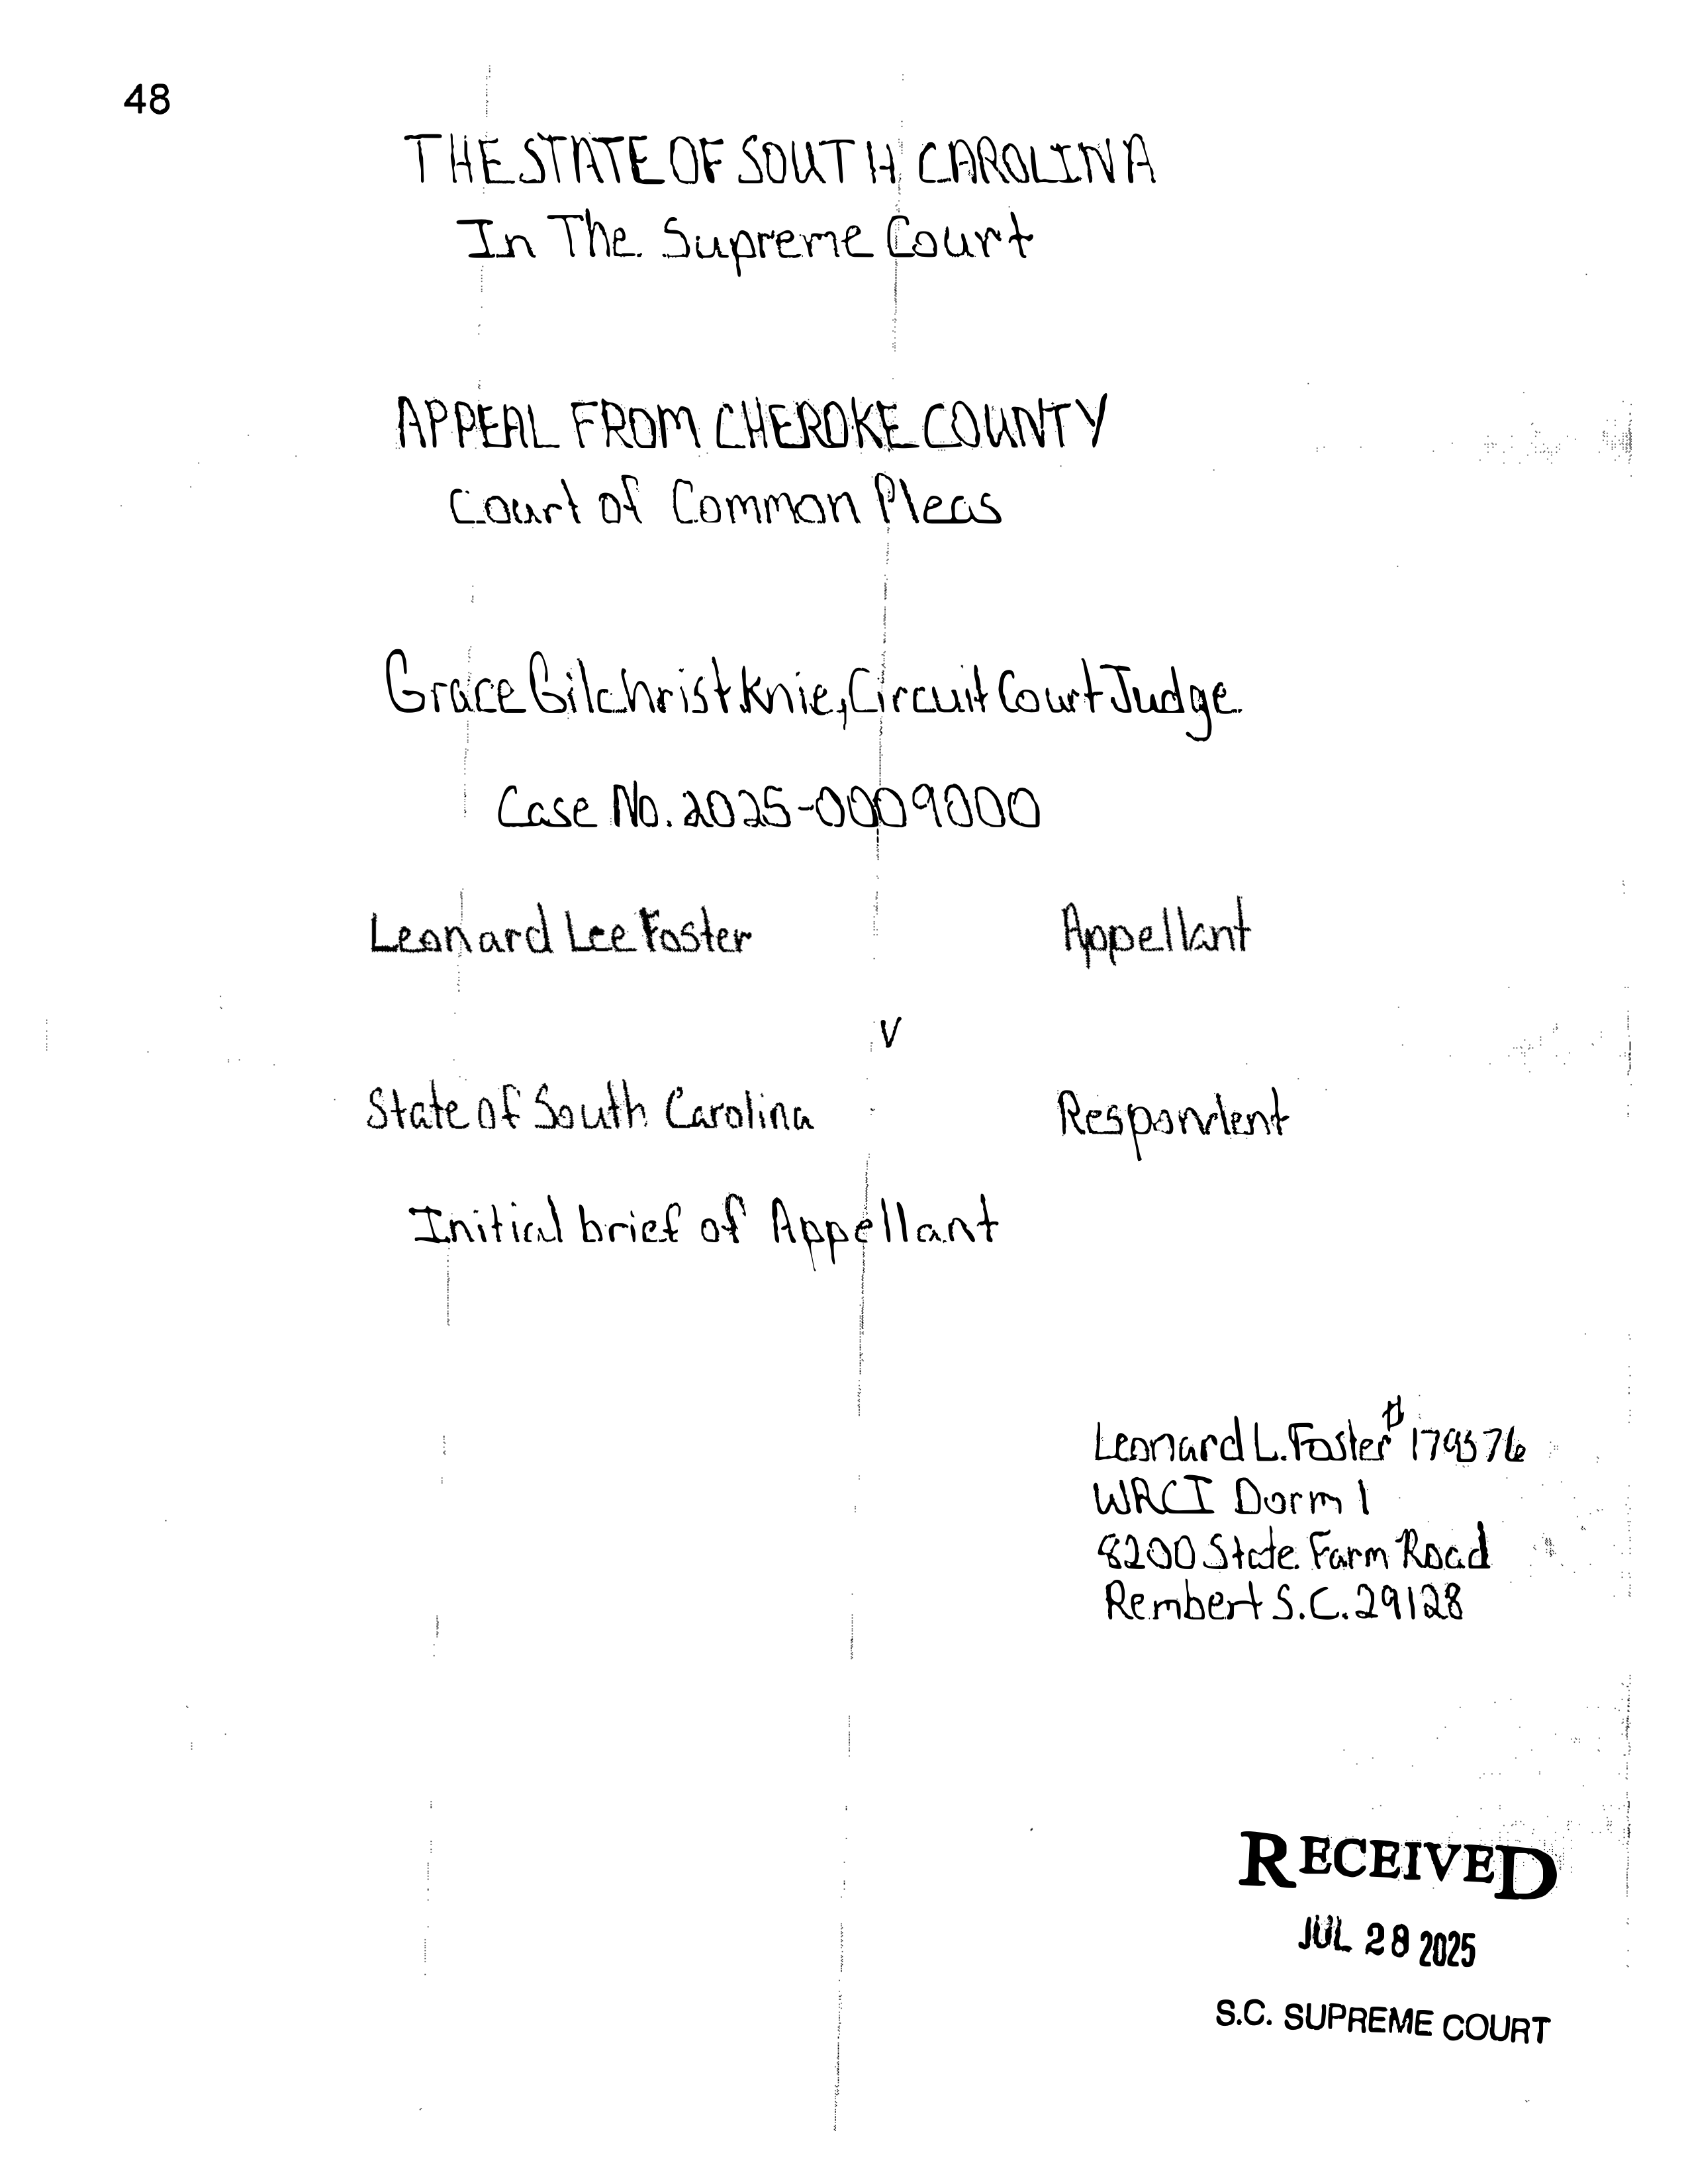 48
THE STATE OF SOUTH CAROLINA
In The Supreme Court
APPEAL FROM CHEROKE COUNTY
Court of Common Pleas
Grace Gilchrist Knie, Circuit Court Judge
Case No. 2025-0009000
Leonard Lee Foster Appellant
v
State of South Carolina Respondent
Initial brief of Appellant
Leonard L. Foster #
WRCI Dorm 1
8200 State Farm Road
Rembert S.C. 29128
RECEIVED
JUL 28 2025
S.C. SUPREME COURT